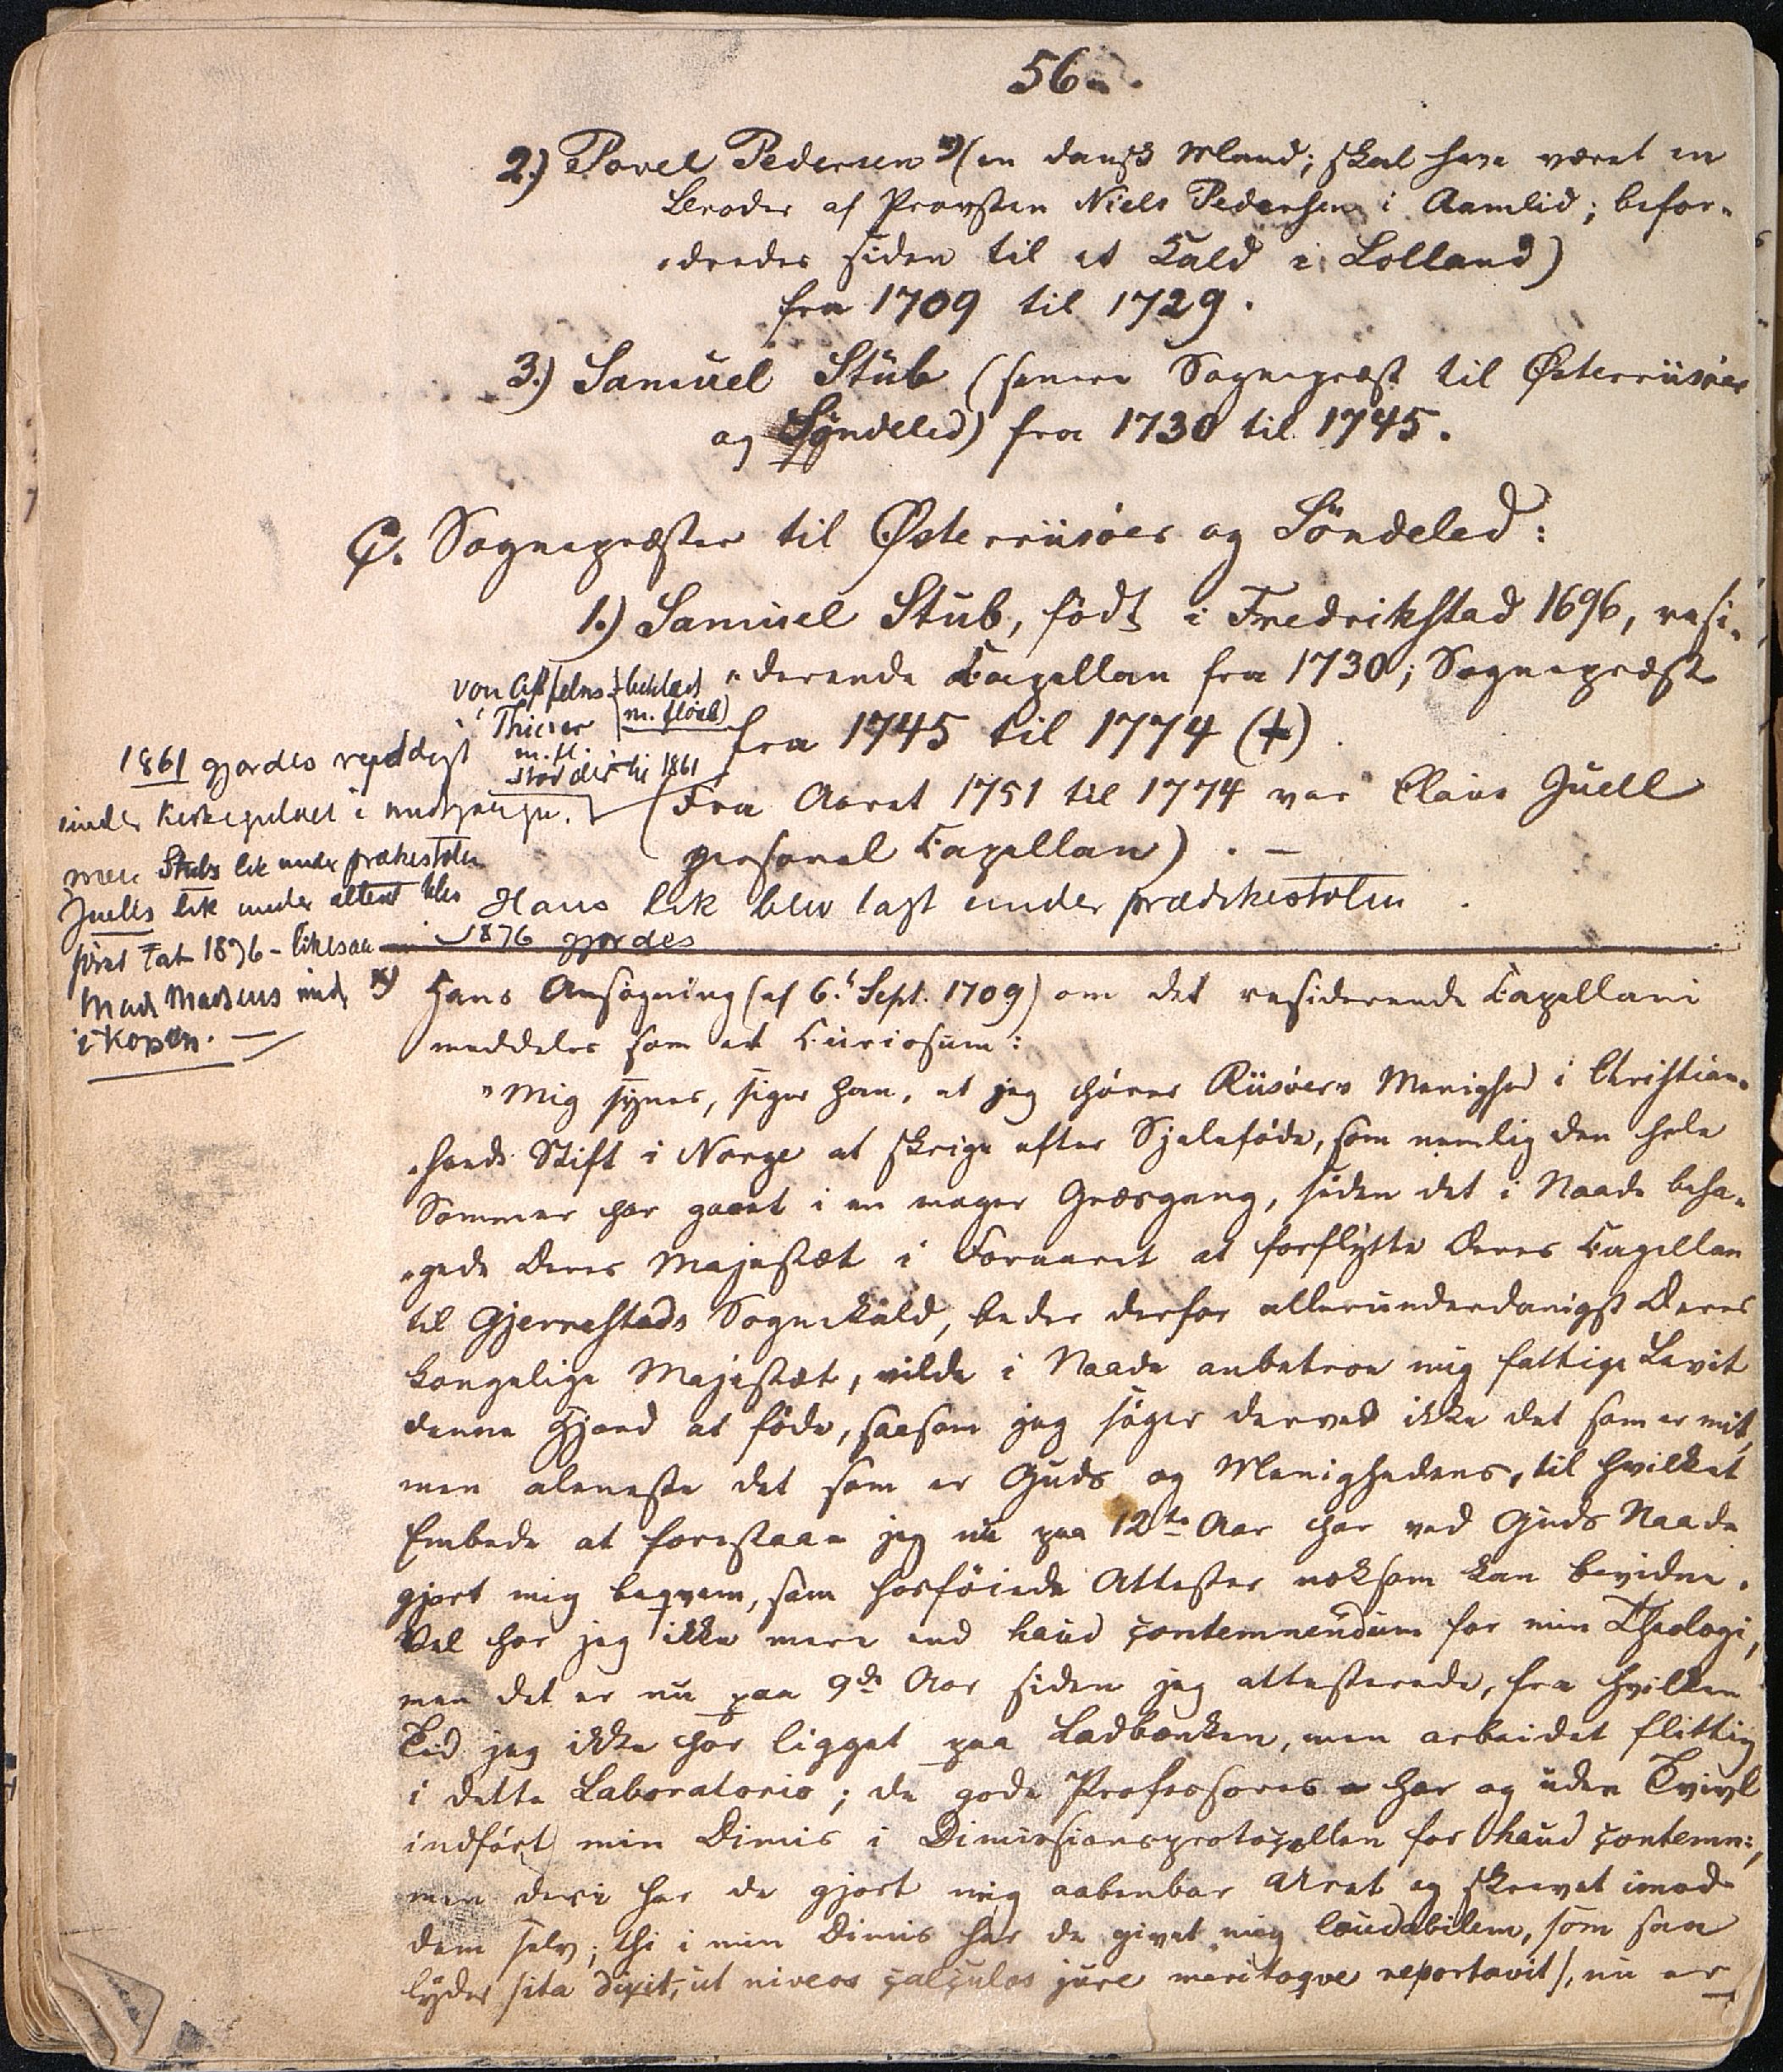 56.
2.) Povel Pedersen *) (en dansk Mand; skal have været en
Broder af Provsten Niels Pedersen i Aamlid; befor-
dredes siden til et Kald i Lolland)
fra 1709 til 1729.
3.) Samuel Stub (senere Sognepræst til Østerriisöer
og Söndeled) fra 1730 til 1745.
C. Sognepræster til Østerriisöer og Söndeled:
1.) Samuel Stub, födt i Fredrikstad 1696, resi-
derende Capellan fra 1730; Sognepræst
fra 1745 til 1774 (+)
(Fra Aaret 1751 til 1774 var Claus Juell
personel Capellan). —
Hans lik blev lagt under prædikestolen.
1876 gjordes
von
Thieser
m. fl.
stod der til 1861
1861 gjordes
under kirkegulvet i
men Stubs lik under prækestolen
Juells lik under alteret blev
först tat 1876 - likesaa
Mads Madsens
i Kopen. —
*) Hans Ansøgning (af 6. Sept. 1709) om det residerende Capellani
meddeles som et Curiosum:
"Mig synes, siger han, at jeg hører Riisöers Menighed i Christian-
sands Stift i Norge at skrige efter Sjeleføde, som nemlig den hele
Sommer har gaaet i en mager Græsgang, siden det i Naade beha-
gede Deres Majestæt i Foraaret at forflytte deres Capellan
til Gjerrestads Sognekald, beder derfor allerunderdanigst Deres
kongelige Majestæt, vilde i Naade anbetroe mig fattige Levit
denne Hjord at föde, saasom jeg søger derved ikke det som er mit,
men aleneste det som er Guds og Menighedens, til hvilket
Embede at forestaae jeg nu paa 12te Aar har ved Guds Naade
gjort mig beqvem, som hosföiede Attester noksom kan bevidne.
Vel har jeg ikke mere end haud contemnendum for min Theologi,
men det er nu paa 9de Aar siden jeg attesterede, fra hvilken
Tid jeg ikke har ligget paa Ladbænken, men arbeidet flittig
i dette Laboratorio; de gode Professores har og uden Tvivl
indført min Dimis i Dimissionsprotocollen for haud contemn:,
men deri har de gjort mig aabenbar Uret og skrevet imod
dem selv; thi i min Dimis har de givet mig laudabilem, som saa
lyder /ita dixit, ut niveos calculos jure meritoqve reportavit/, nu er